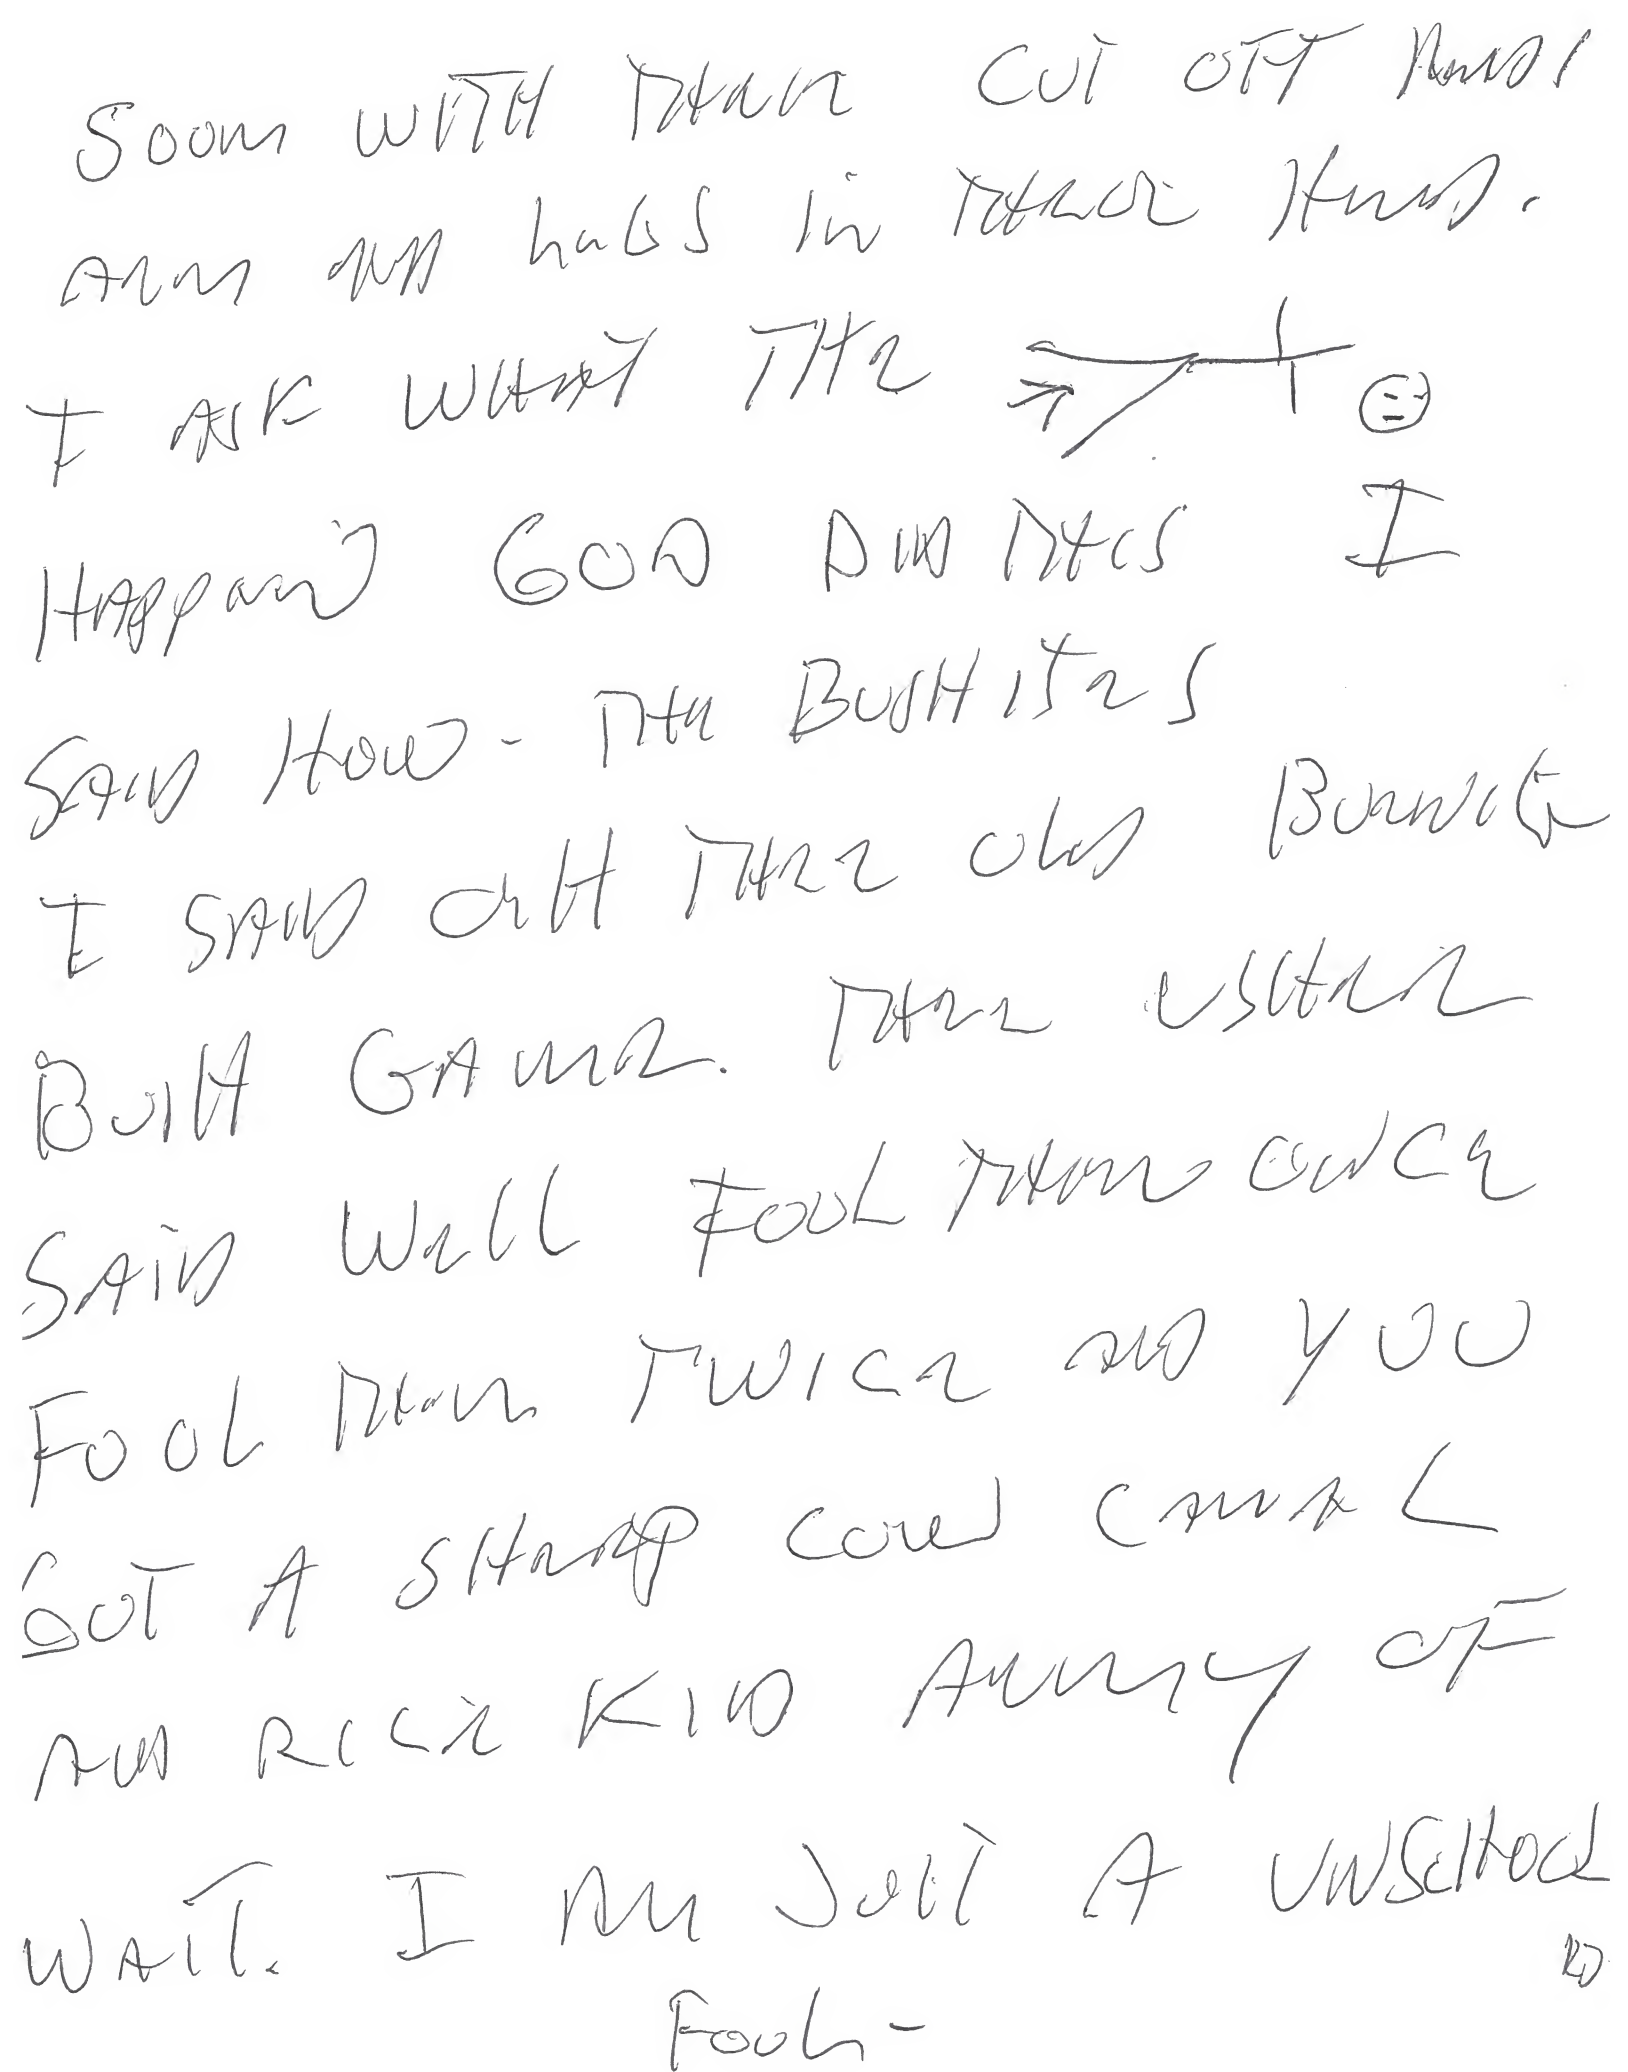 SOON WITH THEIR CUT OFF HANDS
ARM AND LEGS IN THERE HAND.
I ASK WHAT THE
HAPPEN? GOD DID THIS I
SAID HOW - THE BUSHITES
I SAID OH THEE OLD
BUSH GAME. THEE USHER
SAID WELL FOOL THEM ONCE
FOOL THEM TWICE AND YOU
GOT A SHARP COW CAMEL
AND RICE KIND ARMY OF
WAIT. I AM JUST A UNSCHOOL
ED
FOOL -